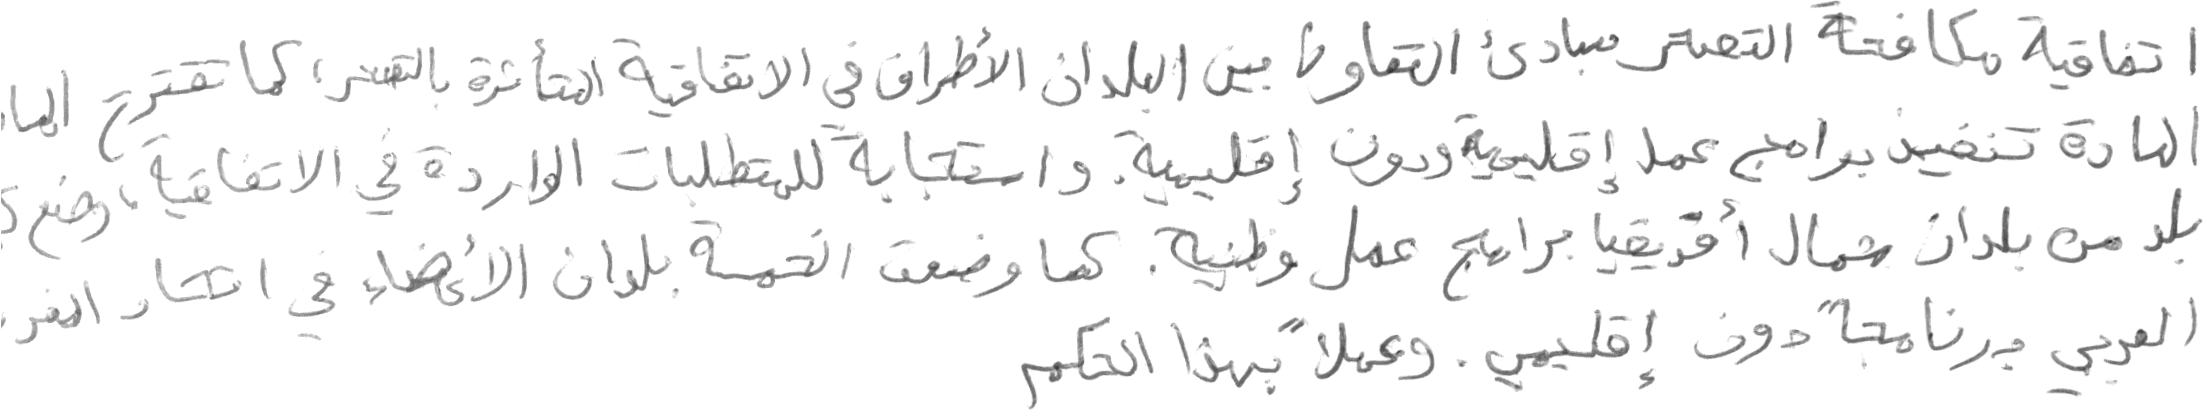 اتفاقية مكافحة التصحر مبادئ التعاون بين البلدان الأطراف في الاتفاقية المتأثرة بالتصحر، كما تقترح
المادة تنفيذ برامج عمل إقليمية ودون إقليمية. واستجابة للمتطلبات الواردة في الاتفاقية، وضع
بلد من بلدان شمال أفريقيا برامج عمل وطنية. كما وضعت الخمسة بلدان الأعضاء في اتحاد
العربي برنامجاً دون إقليمي. وعملاً بهذا الحكم